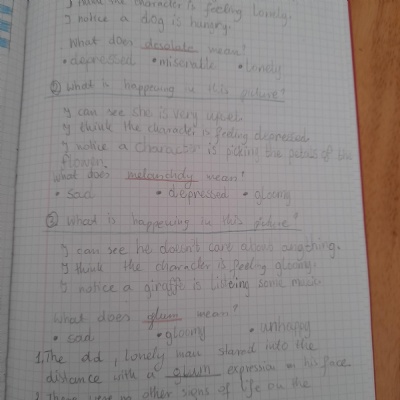 the character is feeling lonely.
I notice a dog is hungry.
What does desolate mean?
• depressed • miserable • lonely
② What is happening in this picture?
I can see she is very upset.
I think the character is feeling depressed
I notice a character is picking the petals of the
flower.
What does melancholy mean?
• sad • depressed • gloomy
③ What is happening in this picture?
I can see he doesn't care about anything.
I think the character is feeling gloomy.
I notice a giraffe is some music
What does glum mean?
• sad • gloomy • unhappy
1, The old, lonely man stared into the
distance with a glum expression on his face
no other signs of life on the